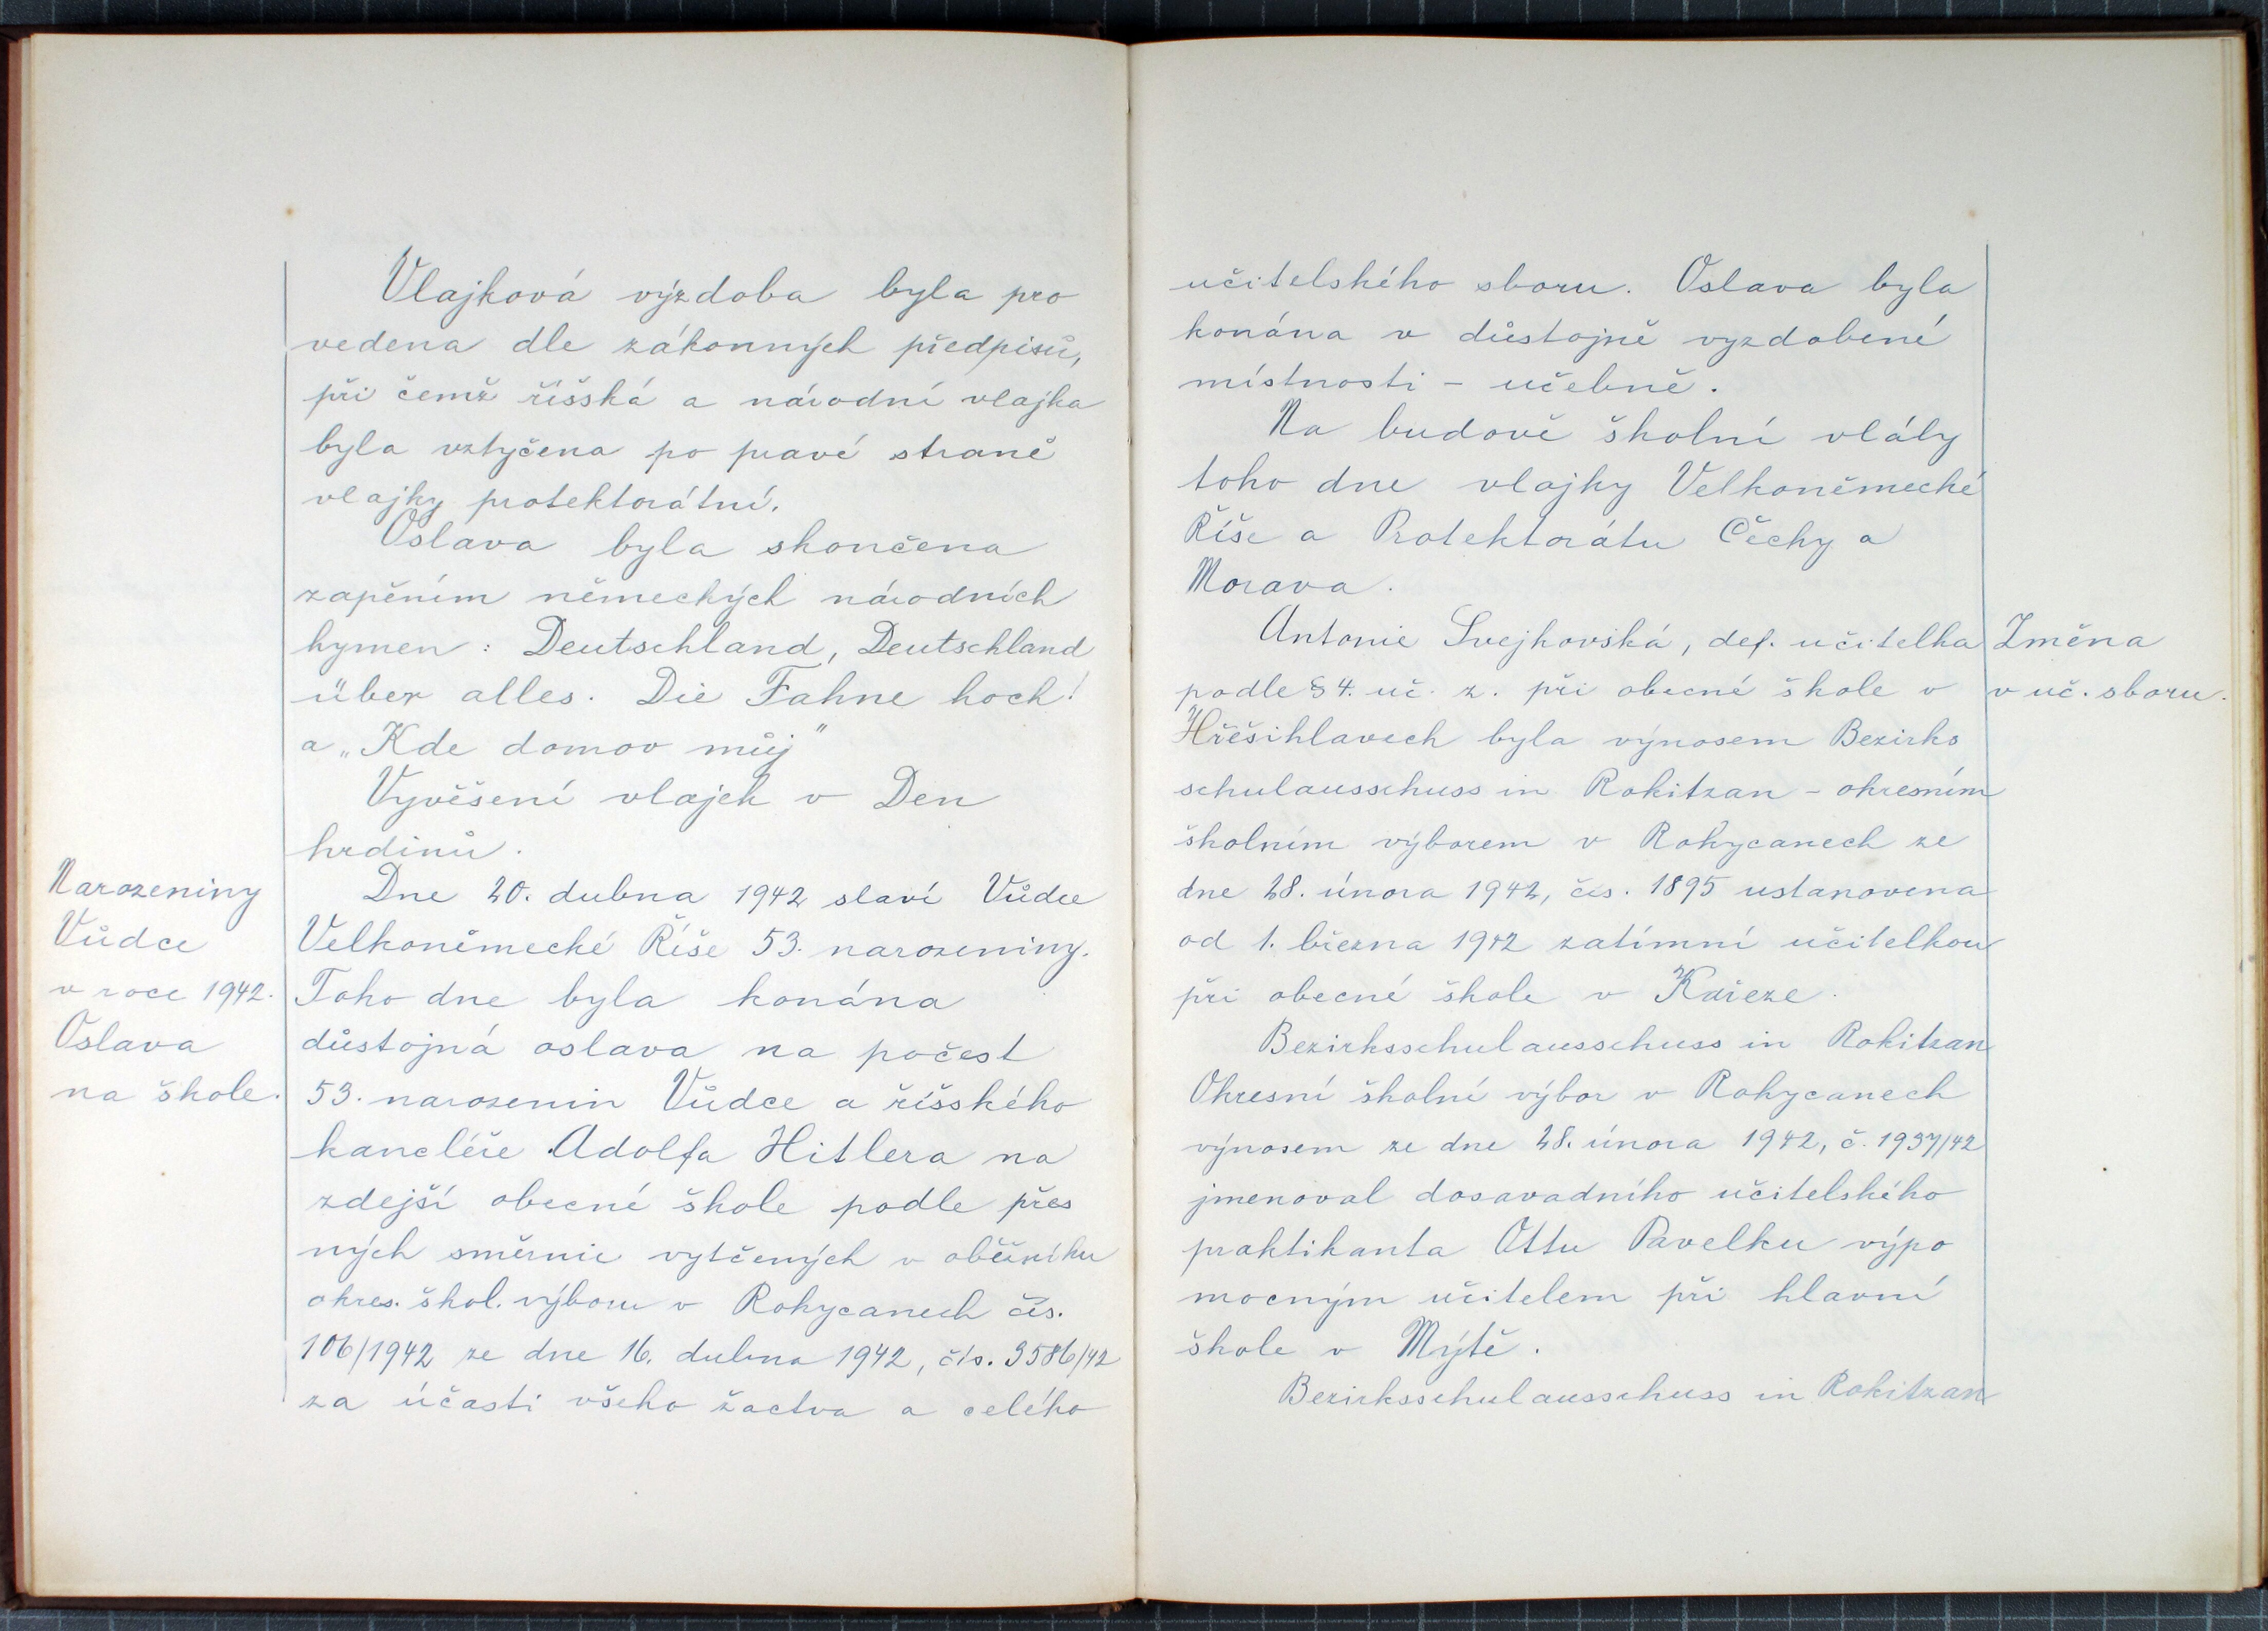 Vlajková výzdoba byla pro
vedena dle zákonných předpisů,
při čemž říšská a národní vlajka
byla vztyčena po pravé straně
vlajky protektorátní.
Oslava byla skončena
zapěním německých národních
hymen: Deutschland, Deutschland
über alles. Die Fahne hoch!
a „Kde domov můj"
Vyvěšení vlajek v Den
hrdinů.
Narozeniny
Vůdce
v roce 1942.
Oslava
na škole.
Dne 20. dubna 1942 slaví Vůdce
Velkoněmecké Říše 53. narozeniny.
Toho dne byla konána
důstojná oslava na počest
53. narozenin Vůdce a říšského
kancléře Adolfa Hitlera na
zdejší obecné škole podle přes
ných směrnic vytčených v oběžníku
okres. škol. výboru v Rokycanech čís.
106/1942 ze dne 16. dubna 1942, čís. 3586/42
za účasti všeho žactva a celého
učitelského sboru. Oslava byla
konána v důstojně vyzdobené
místnosti - učebně.
Na budově školní vlály
toho dne vlajky Velkoněmecké
Říše a Protektorátu Čechy a
Morava.
Antonie Svejkovská, def. učitelka
podle § 4. uč. z. při obecné škole v
Hřešihlavech byla výnosem Bezirks
schulausschuss in Rokitzan - okresním
školním výborem v Rokycanech ze
dne 28. února 1942, čís. 1895 ustanovena
od 1. března 1942 zatímní učitelkou
při obecné škole v Kařeze.
Změna
v uč. sboru.
Bezirksschulausschuss in Rokitzan
Okresní školní výbor v Rokycanech
výnosem ze dne 28. února 1942, č. 1937/42
jmenoval dosavadního učitelského
praktikanta Ottu Pavelku výpo
mocným učitelem při hlavní
škole v Mýtě.
Bezirksschulausschuss in Rokitzan